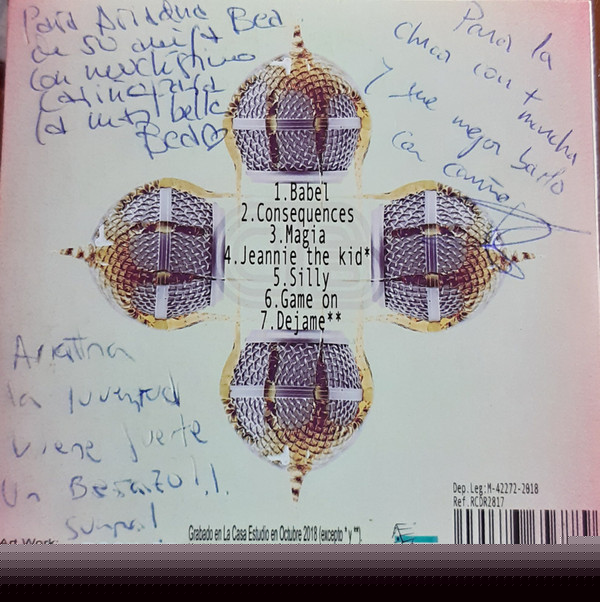 Para Ariadna Bea
con muchísimo
la más bella
Bea
Para la
chica con + marcha
y que mejor bailo
con cariño
1.Babel
2.Consequences
3.Magia
4.Jeannie the kid*
5.Silly
6.Game on
7.Dejame**
la juventud
viene fuerte
Un Besazo!!.
Dep.Leg:M-42272-2018
Ref.RCOR2817
Art Work:
Grabado en La Casa Estudio en Octubre 2018 (excepto * y **).